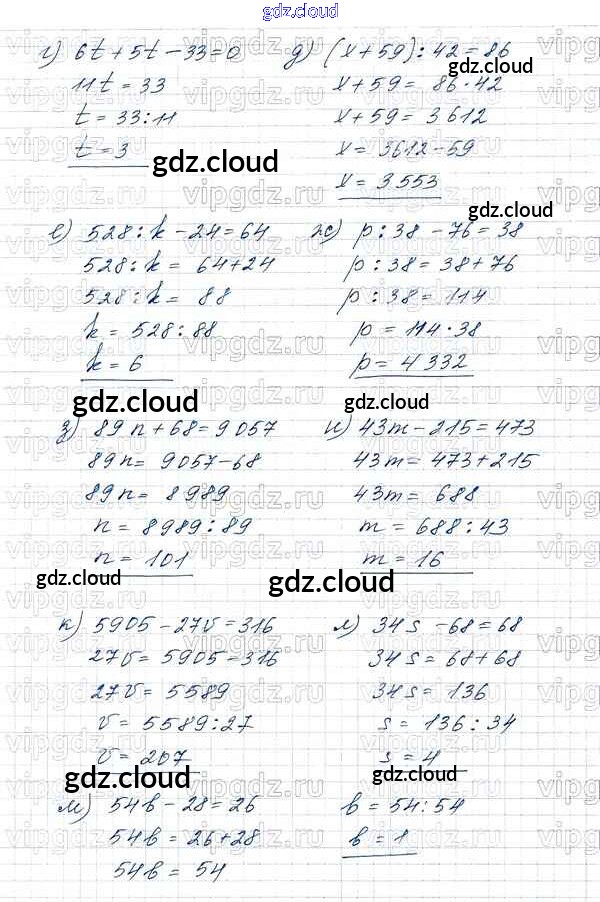 gdz.cloud
gdz.cloud
г) 6t + 5t - 33 = 0
11t = 33
t = 33 : 11
t = 3
д) (x + 59) : 42 = 86
gdz.cloud
x + 59 = 86 · 42
x + 59 = 3612
x = 3612 - 59
x = 3553
gdz.cloud
gdz.cloud
gdz.cloud
е) 528 : k - 24 = 64
528 : k = 64 + 24
528 : k = 88
k = 528 : 88
k = 6
ж) p : 38 - 76 = 38
p : 38 = 38 + 76
p : 38 = 114
p = 114 · 38
p = 4332
gdz.cloud
gdz.cloud
з) 89n + 68 = 9057
89n = 9057 - 68
89n = 8989
n = 8989 : 89
n = 101
и) 43m - 215 = 473
43m = 473 + 215
43m = 688
m = 688 : 43
m = 16
gdz.cloud
gdz.cloud
к) 5905 - 27v = 316
27v = 5905 = 316
27v = 5589
v = 5589 : 27
v = 207
л) 34s - 68 = 68
34s = 68 + 68
34s = 136
s = 136 : 34
s = 4
gdz.cloud
gdz.cloud
м) 54b - 28 = 26
54b = 26 + 28
54b = 54
b = 54 : 54
b = 1
vipgdz.ru